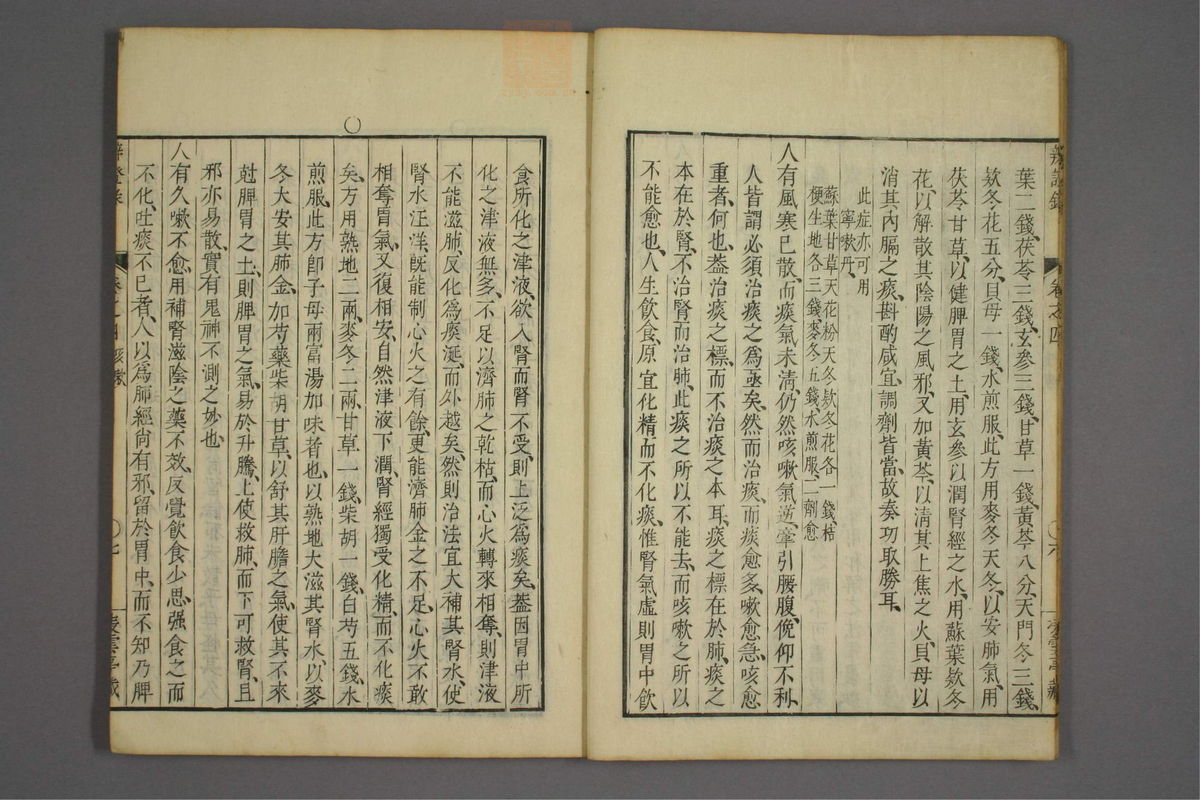 葉二錢、茯苓三錢、玄參三錢、甘草一錢、黃芩八分、天門冬三錢、
欵冬花五分、貝母一錢、水煎服、此方用麥冬天冬、以安肺氣、用
茯苓甘草、以健脾胃之土、用玄參以潤腎經之水、用蘇葉欵冬
花、以解散其陰陽之風邪、又加黃芩、以淸其上焦之火、貝母以
消其內膈之痰、斟酌咸宜、調劑皆當、故奏功取勝耳、
此症亦可用
寧嗽丹、
蘇葉甘草天花粉天冬欵冬花各一錢桔
梗生地各三錢、麥冬五錢、水煎服、二劑愈
人有風寒已散、而痰氣未淸、仍然咳嗽氣逆、牽引腰腹、俛仰不利、
人皆謂必須治痰之爲亟矣、然而治痰、而痰愈多、嗽愈急、咳愈
重者、何也、葢治痰之標、而不治痰之本耳、痰之標在於肺、痰之
本在於腎、不治腎而治肺、此痰之所以不能去、而咳嗽之所以
不能愈也、人生飲食、原宜化精而不化痰、惟腎氣虛則胃中飲
卷之四
食所化之津液、欲入腎而腎不受、則上泛爲痰矣、葢因胃中所
化之津液無多、不足以濟肺之乾枯、而心火轉來相奪、則津液
不能滋肺、反化爲痰涎、而外越矣、然則治法宜大補其腎水、使
腎水汪洋、旣能制心火之有餘、更能濟肺金之不足、心火不敢
相奪、胃氣又復相安、自然津液下潤、腎經獨受化精、而不化痰
矣、方用熟地二兩、麥冬二兩、甘草一錢、柴胡一錢、白芍五錢、水
煎服、此方卽子母兩富湯加味者也、以熟地大滋其腎水、以麥
冬大安其肺金、加芍藥柴胡甘草、以舒其肝膽之氣、使其不來
尅脾胃之土、則脾胃之氣、易於升騰、上使救肺、而下可救腎、且
邪亦易散、實有鬼神不測之妙也、
人有久嗽不愈、用補腎滋陰之藥不效、反覺飲食少思、强食之而
不化、吐痰不已者、人以爲肺經尙有邪、留於胃中、而不知乃脾